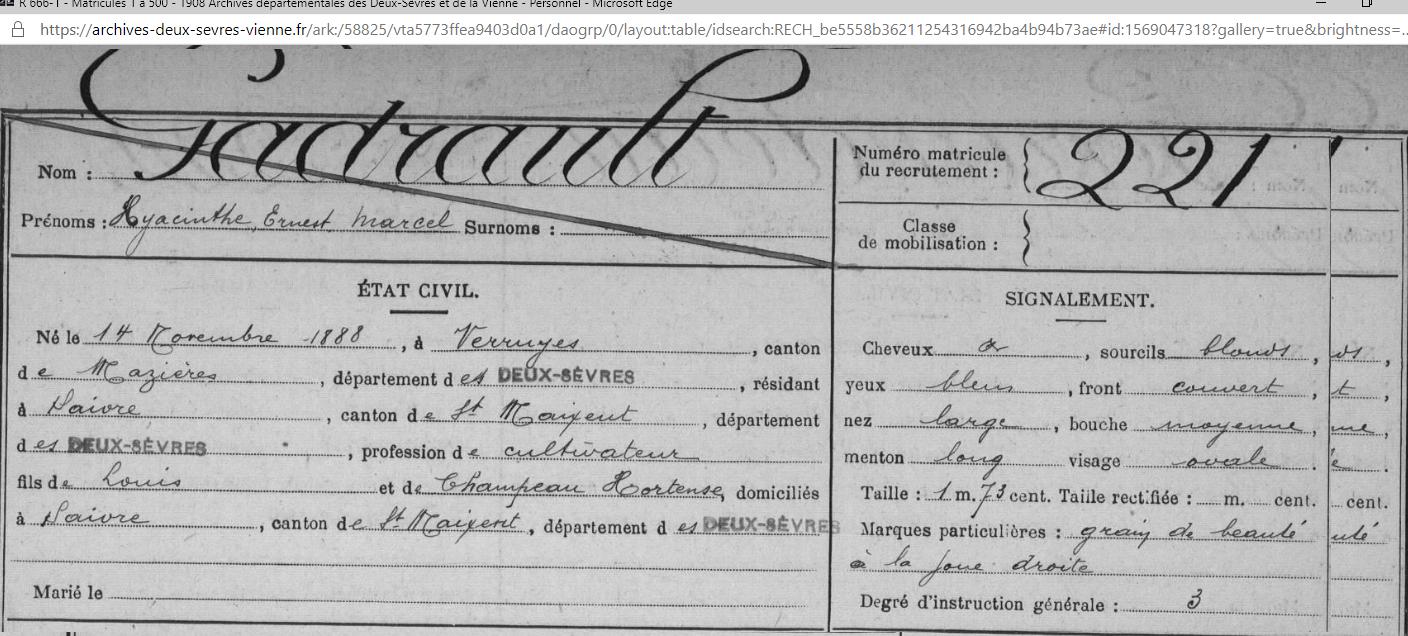 R 666-1 - Matricules 1 à 500 - 1908 Archives départementales des Deux-Sèvres et de la Vienne - Personnel - Microsoft Edge
https://archives-deux-sevres-vienne.fr/ark:/58825/vta5773ffea9403d0a1/daogrp/0/layout:table/idsearch:RECH_be5558b36211254316942ba4b94b73ae#id:1569047318?gallery=true&brightness=...
Nom : Gadrault
Prénoms : Hyacinthe, Ernest Marcel Surnoms :
Numéro matricule du recrutement : 221
Classe de mobilisation :
ÉTAT CIVIL.
Né le 14 Novembre 1888, à Verruyes, canton
de Mazières, département des DEUX-SÈVRES, résidant
à Saivre, canton de St Maixent, département
des DEUX-SÈVRES, profession de cultivateur
fils de Louis et de Champeau Hortense, domiciliés
à Saivre, canton de St Maixent, département des DEUX-SÈVRES
Marié le
SIGNALEMENT.
Cheveux &, sourcils blonds, ds,
yeux bleus, front couvert, t,
nez large, bouche moyenne, nne,
menton long visage ovale. e.
Taille : 1 m. 73 cent. Taille rectifiée : m. cent. cent.
Marques particulières : grain de beauté uté
à la joue droite
Degré d'instruction générale : 3